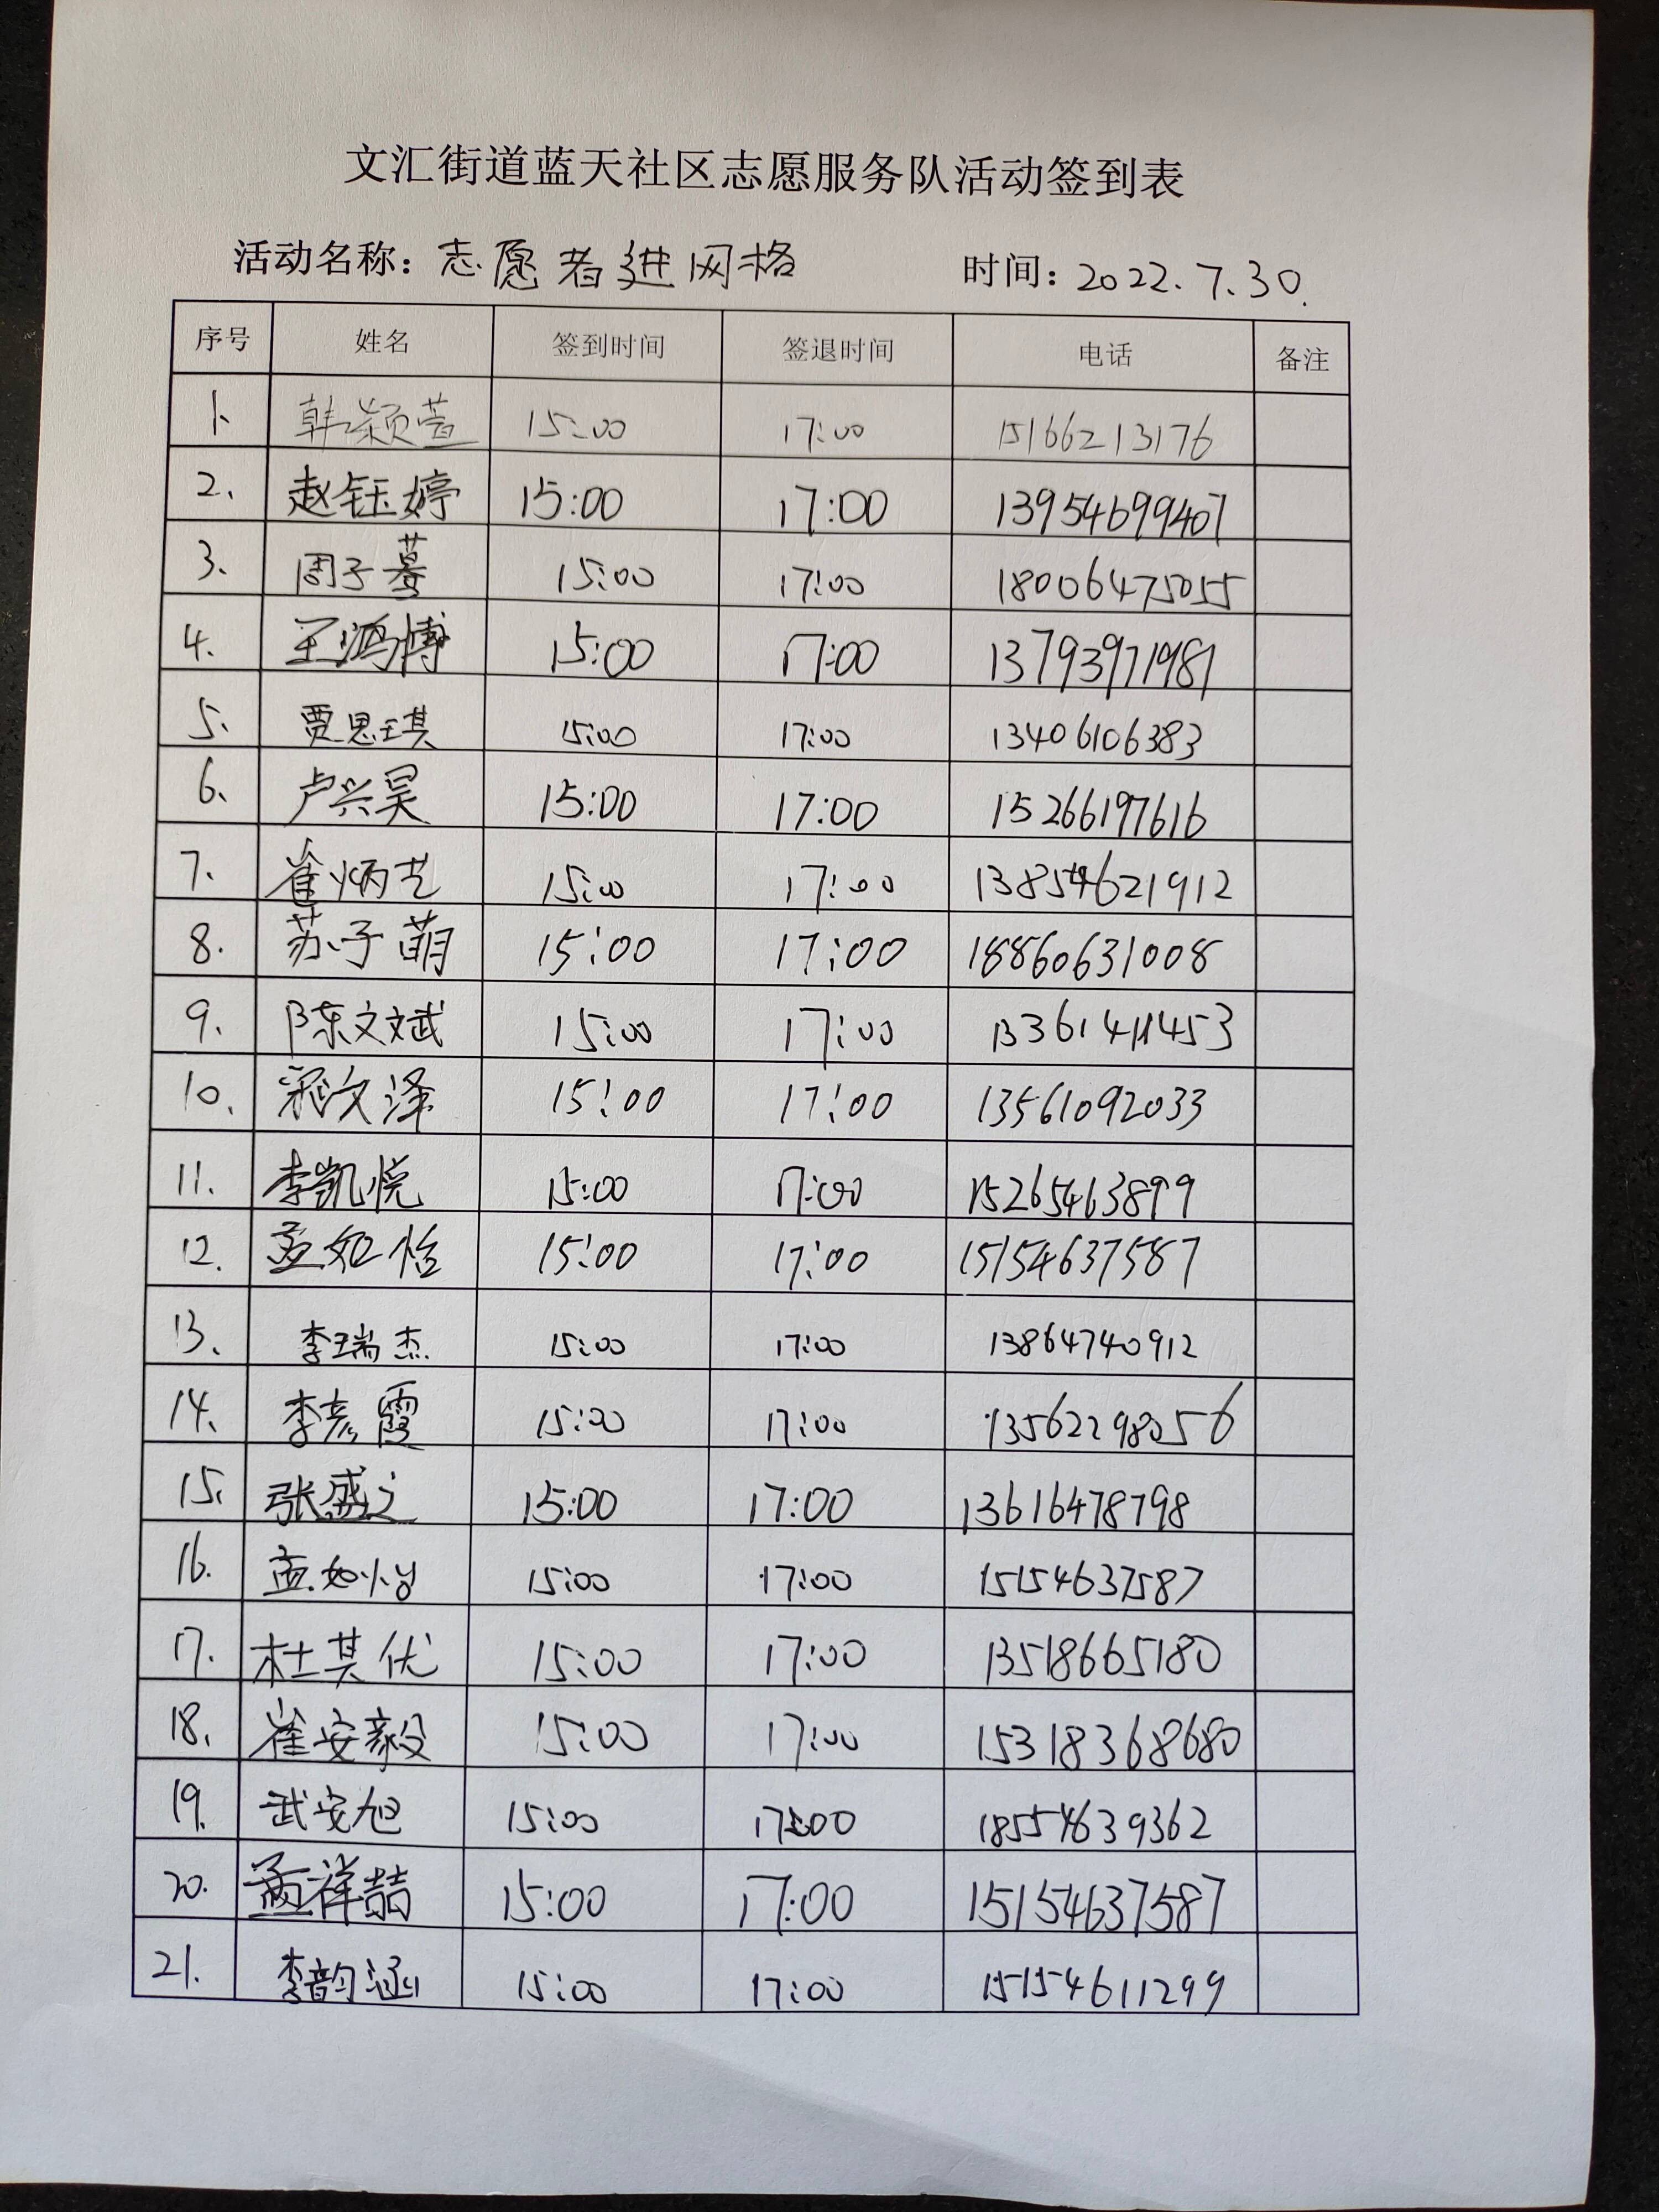 文汇街道蓝天社区志愿服务队活动签到表
活动名称：志愿者进网格 时间：2022.7.30.
序号 姓名 签到时间 签退时间 电话 备注
1、 韩颖萱 15:00 17:00 15166213176
2、 赵钰婷 15:00 17:00 13954699407
3、 周子蓦 15:00 17:00 18006475055
4、 王鸿博 15:00 17:00 13793971981
5、 贾思琪 15:00 17:00 13406106383
6、 卢兴昊 15:00 17:00 15266197616
7、 崔炳艺 15:00 17:00 13854621912
8. 苏子萌 15:00 17:00 18860631008
9、 陈文斌 15:00 17:00
10、 文泽 15:00 17:00 13561092033
11. 李凯悦 15:00 17:00 15265463899
12. 孟如怡 15:00 17:00 15154637587
13、 李瑞杰 15:00 17:00 13864740912
14、 李彦霞 15:00 17:00 13562298056
15、 张盛之 15:00 17:00 13616478798
16. 孟如 15:00 17:00 15154637587
17. 杜其优 15:00 17:00 13518665180
18、 崔安毅 15:00 17:00 15318368680
19. 武安旭 15:00 17:00 18554639362
20. 孟祥喆 15:00 17:00 15154637587
21. 李韵涵 15:00 17:00 15154611299